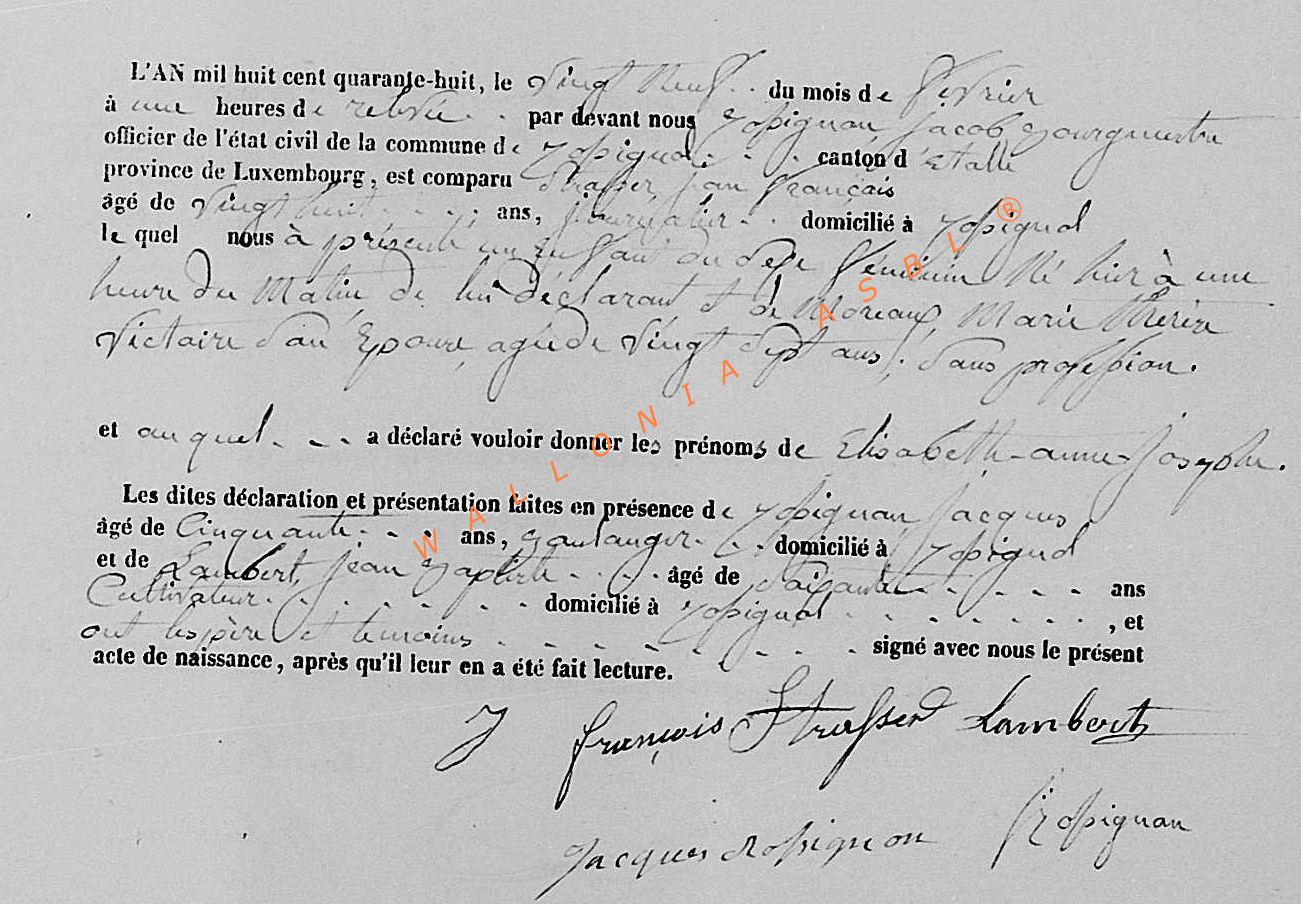 L'AN mil huit cent quarante-huit, le vingt neuf du mois de février
à une heures de relevée par devant nous Rossignon Jacob Bourgmestre
officier de l'état civil de la commune de Rossignol canton d'Etalle
province de Luxembourg, est comparu Strasser jean françois
âgé de vingt huit ans, journalier domicilié à Rossignol
lequel nous à présenté un enfant du sexe féminin Né hier à une
heure du Matin de lui déclarant et de Moreaux, Marie Thérèse
Victoire son Epouse, agée de vingt sept ans, sans profession.
et auquel a déclaré vouloir donner les prénoms de Elisabeth-anne-Josephe.
Les dites déclaration et présentation faites en présence de Rossignon Jacques
âgé de Cinquante ans, Boulanger domicilié à Rossignol
et de Lambert, Jean Baptiste âgé de soixante ans
Cultivateur domicilié à Rossignol, et
ont les père et temoins signé avec nous le présent
acte de naissance, après qu'il leur en a été fait lecture.
J françois Strasser Lambert
Jacques Rossignon Rossignon
WALLONIA ASBL ®